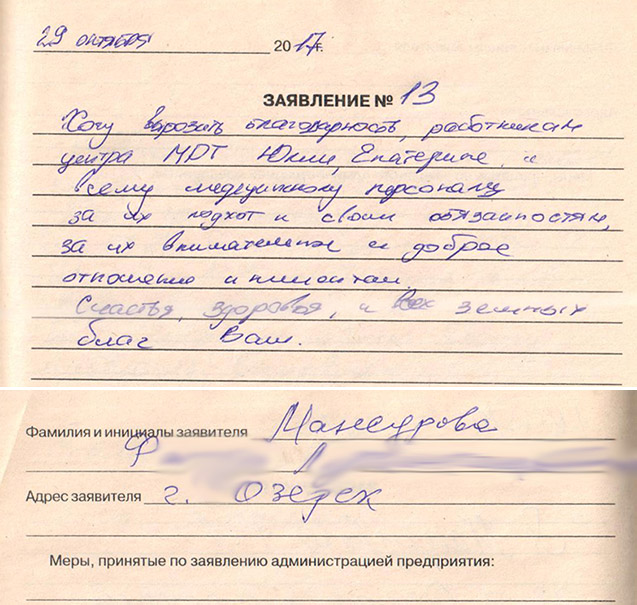 29 октября 2017г.
ЗАЯВЛЕНИЕ № 13
Хочу выразить благодарность, работникам
центра МРТ Юлии, Екатерине, и
всему медецинскому персоналу
за их подхот к своим обязанностям,
за их внимательное и доброе
отношение к пациентам.
Счастья, здоровья, и всех земных
благ Вам.
Фамилия и инициалы заявителя Мансурова
Ф Л
Адрес заявителя г. Озерск
Меры, принятые по заявлению администрацией предприятия: